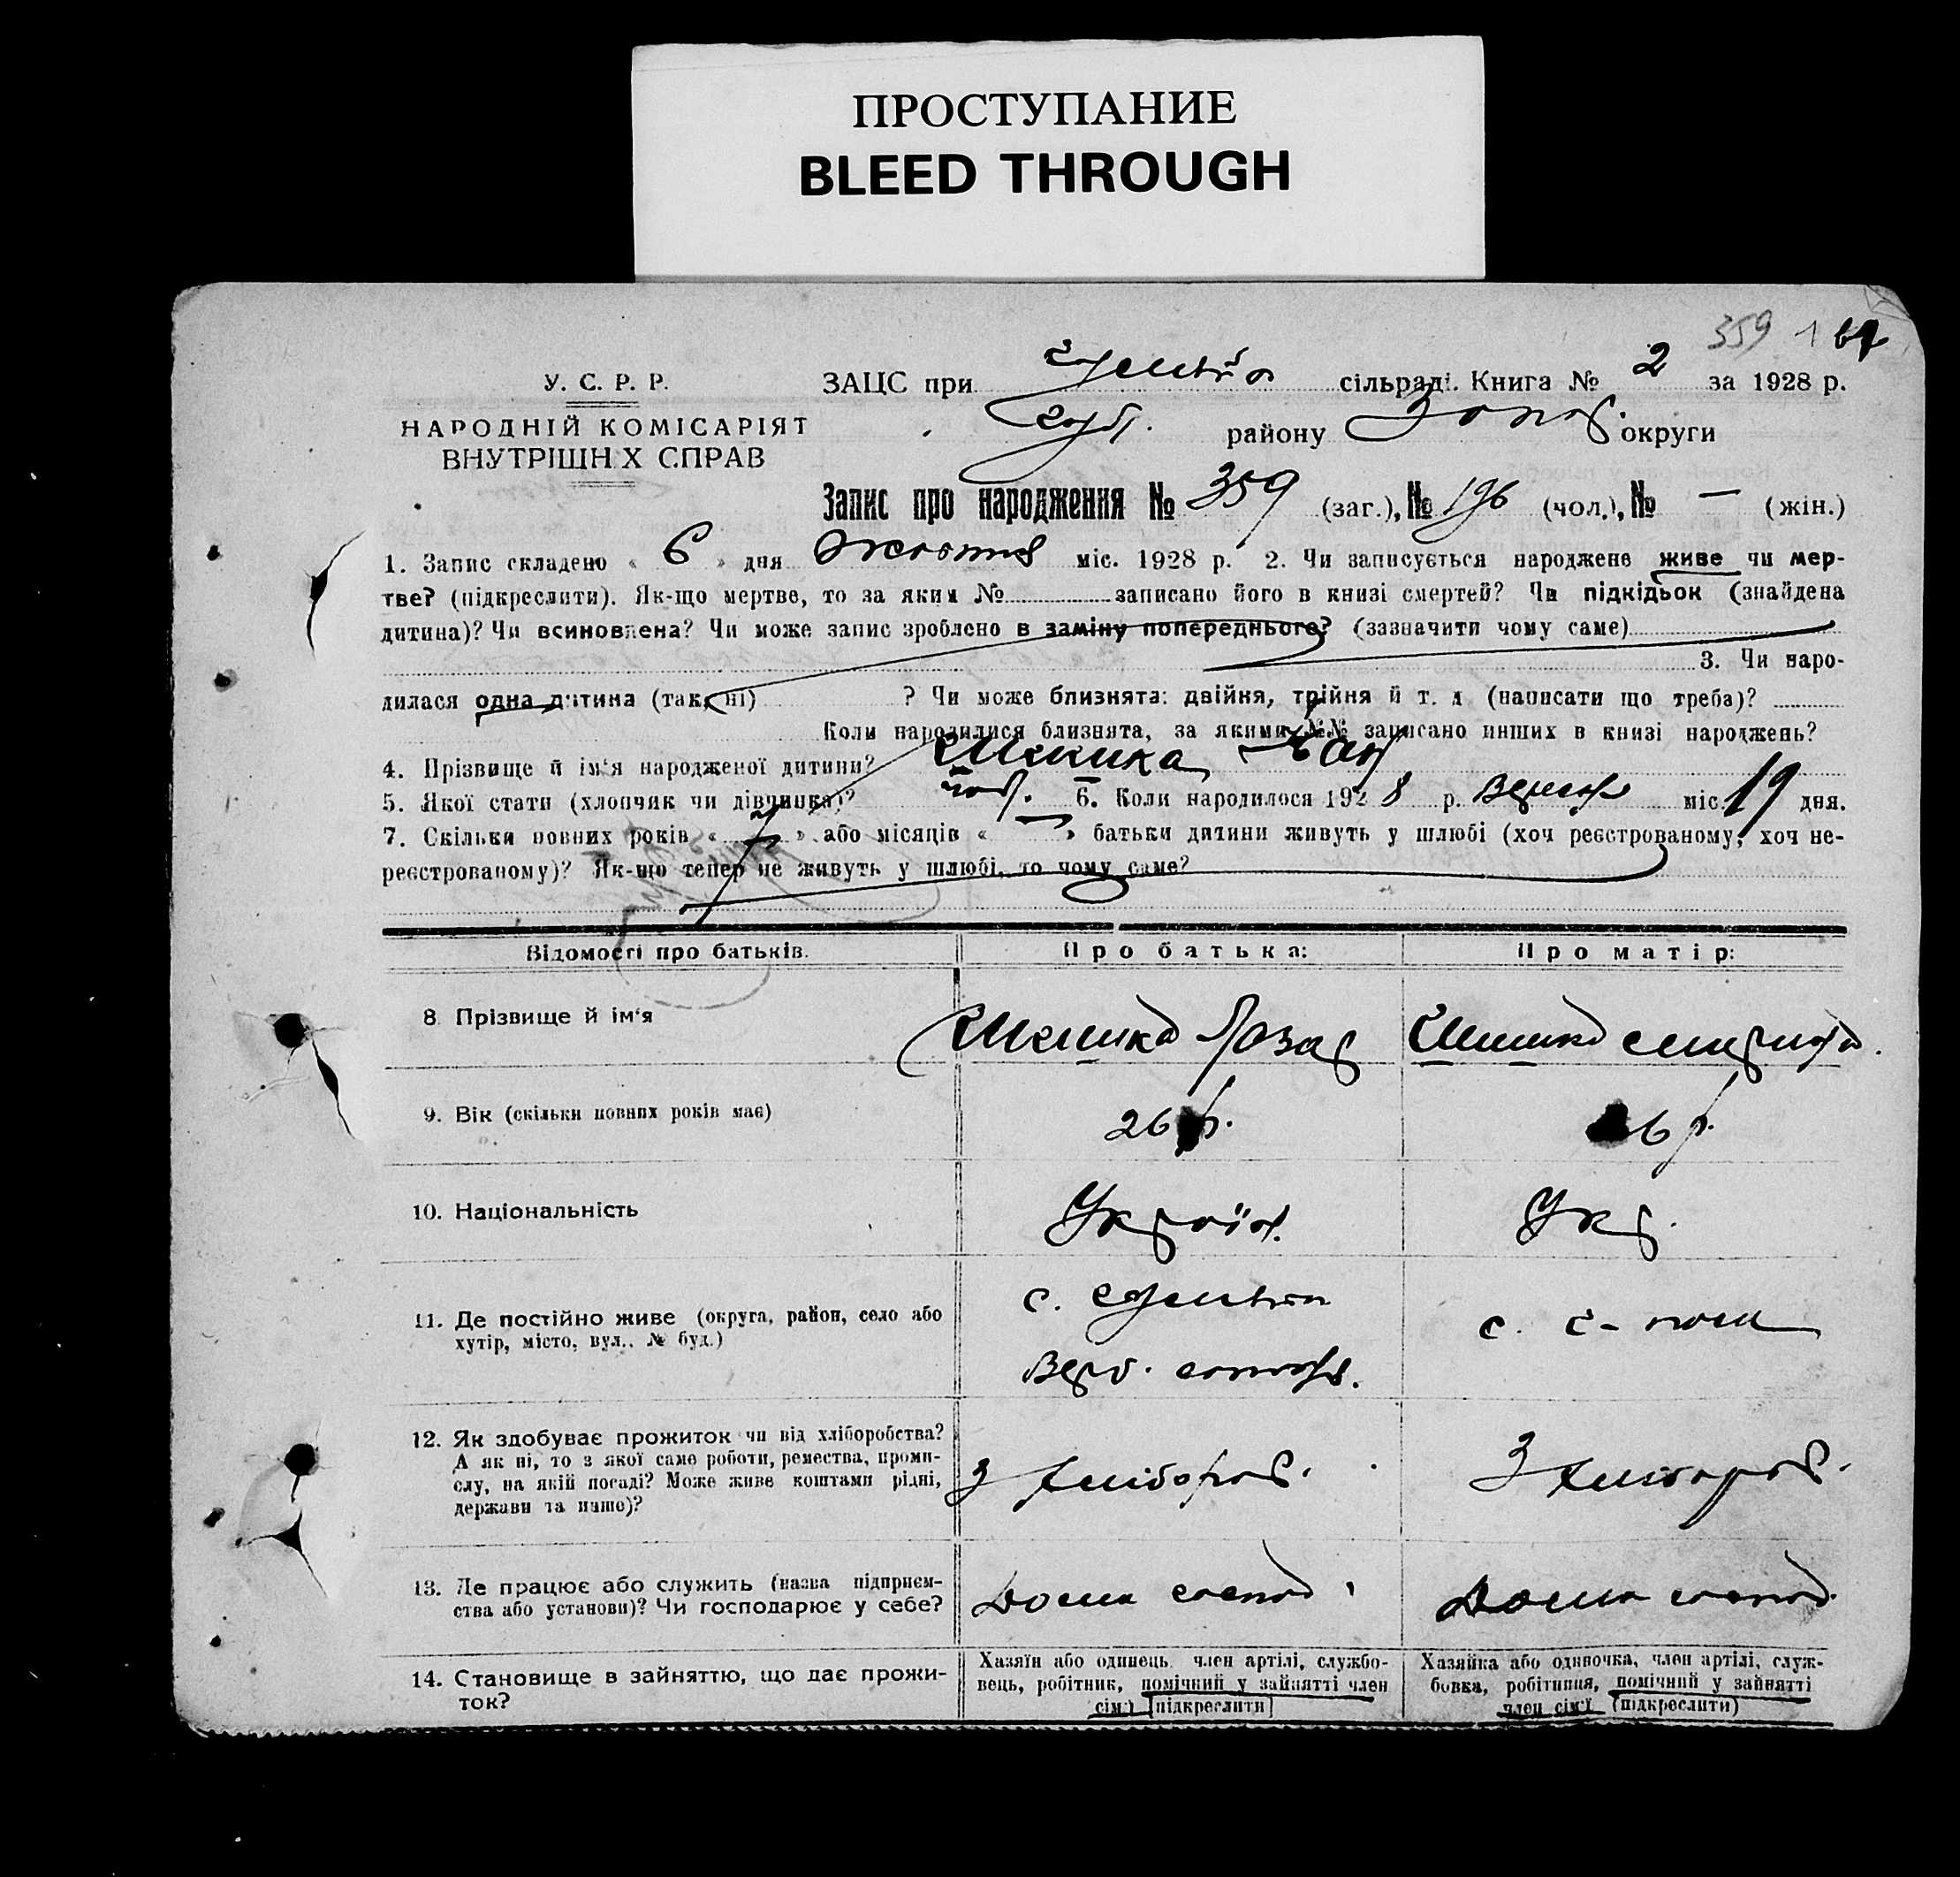 ПРОСТУПАНИЕ
BLEED THROUGH
359 1
У. С. Р. Р.
НАРОДНІЙ КОМІСАРІЯТ
ВНУТРІШН Х СПРАВ
ЗАЦС при сільраді. Книга № 2 за 1928 р.
району Запор. округи
Запис про народження № 359 (заг.), № 196 (чол.), № — (жін.)
1. Запис складено « 6 » дня Жовтня міс. 1928 р. 2. Чи записується народжене живе чи мер-
тве? (підкреслити). Як-що мертве, то за яким № записано його в книзі смертей? Чи підкідьок (знайдена
дитина)? Чи всиновлена? Чи може запис зроблено в заміну попереднього? (зазначити чому саме)
3. Чи наро-
дилася одна дитина (так, ні) ? Чи може близнята: двійня, трійня й т. д (написати що треба)?
Коли народилися близнята, за якими №№ записано инших в книзі народжень?
4. Прізвище й ім'я народженої дитини? Шишка
5. Якої стати (хлопчик чи дівчинка)? чол. 6. Коли народилося 1928 р. Вересня міс. 19 дня.
7. Скільки повних років « 7 » або місяців « — » батьки дитини живуть у шлюбі (хоч реєстрованому, хоч не-
реєстрованому)? Як-що тепер не живуть у шлюбі, то чому саме?
Відомості про батьків.
Про батька:
Про матір:
8. Прізвище й ім'я
Шишка
Шишка
9. Вік (скільки повних років має)
26 р.
26 р.
10. Національність
Україн.
Укр.
11. Де постійно живе (округа, район, село або
хутір, місто, вул., № буд.)
с.
с.
12. Як здобуває прожиток чи від хліборобства?
А як ні, то з якої саме роботи, ремества, проми-
слу, на якій посаді? Може живе коштами рідні,
держави та инше)?
З хлібороб.
З хлібороб.
13. Де працює або служить (назва підприєм-
ства або установи)? Чи господарює у себе?
Дома господ.
Дома господ.
14. Становище в зайняттю, що дає прожи-
ток?
Хазяїн або одинець, член артілі, службо-
вець, робітник, помічний у зайнятті член
сім'ї (підкреслити)
Хазяйка або одиночка, член артілі, служ-
бовка, робітниця, помічний у зайнятті
член сім'ї (підкреслити)